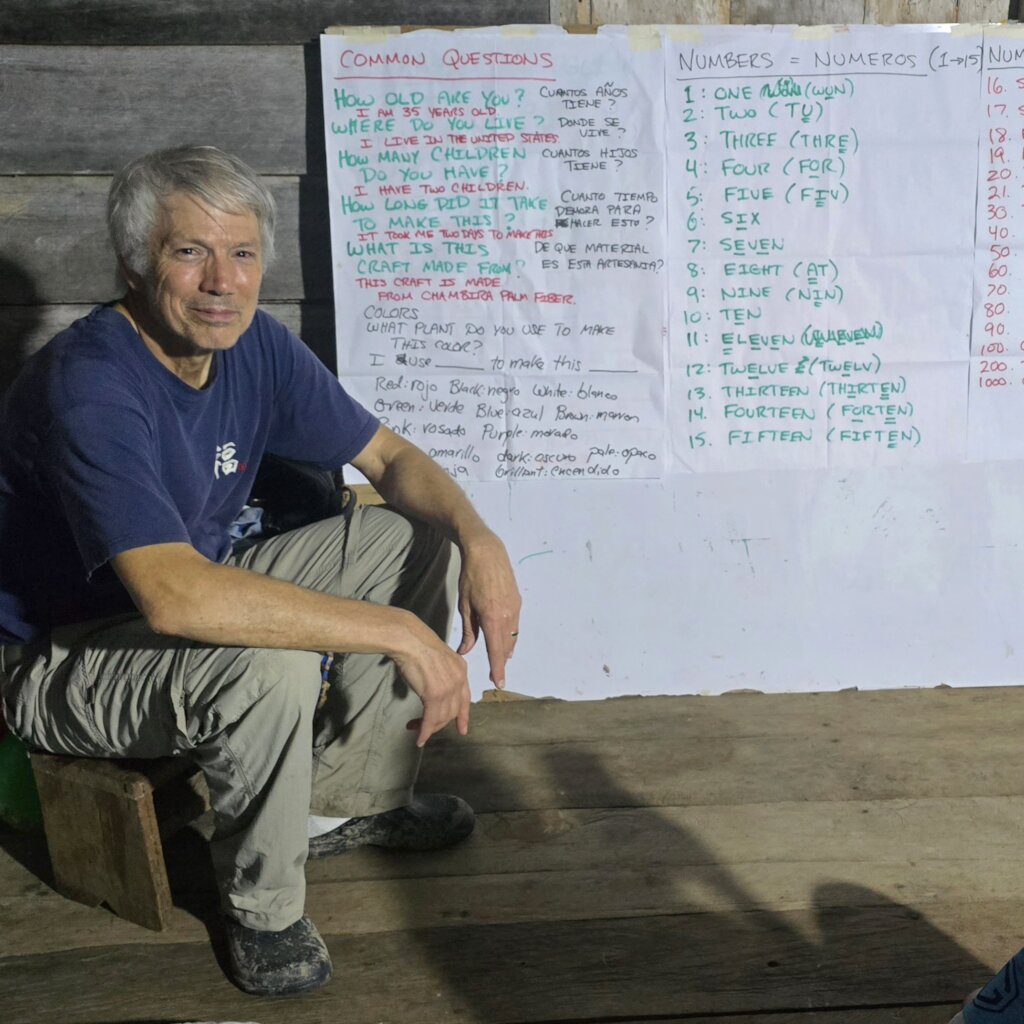 COMMON QUESTIONS
HOW OLD ARE YOU? CUANTOS AÑOS TIENE?
I AM 35 YEARS OLD.
WHERE DO YOU LIVE? DONDE SE VIVE?
I LIVE IN THE UNITED STATES.
HOW MANY CHILDREN CUANTOS HIJOS TIENE?
DO YOU HAVE?
I HAVE TWO CHILDREN.
HOW LONG DID IT TAKE CUANTO TIEMPO
TO MAKE THIS? DEMORA PARA HACER ESTO?
IT TOOK ME TWO DAYS TO MAKE THIS
WHAT IS THIS DE QUE MATERIAL
CRAFT MADE FROM? ES ESTA ARTESANIA?
THIS CRAFT IS MADE
FROM CHAMBIRA PALM FIBER.
COLORS
WHAT PLANT DO YOU USE TO MAKE
THIS COLOR?
I use ____ to make this ____
Red: rojo Black: negro White: blanco
Green: verde Blue: azul Brown: marron
Pink: rosado Purple: morado
amarillo dark: oscuro pale: opaco
brillant: encendido
NUMBERS = NUMEROS (1→15)
1: ONE (WUN)
2: TWO (TU)
3: THREE (THRE)
4: FOUR (FOR)
5: FIVE (FIV)
6: SIX
7: SEVEN
8: EIGHT (AT)
9: NINE (NIN)
10: TEN
11: ELEVEN
12: TWELVE (TWELV)
13. THIRTEEN (THIRTEN)
14. FOURTEEN (FORTEN)
15. FIFTEEN (FIFTEN)
NUM
16. S
17. S
18.
19.
20.
21.
30.
40.
50.
60.
70.
80.
90.
100.
200.
1000.
福